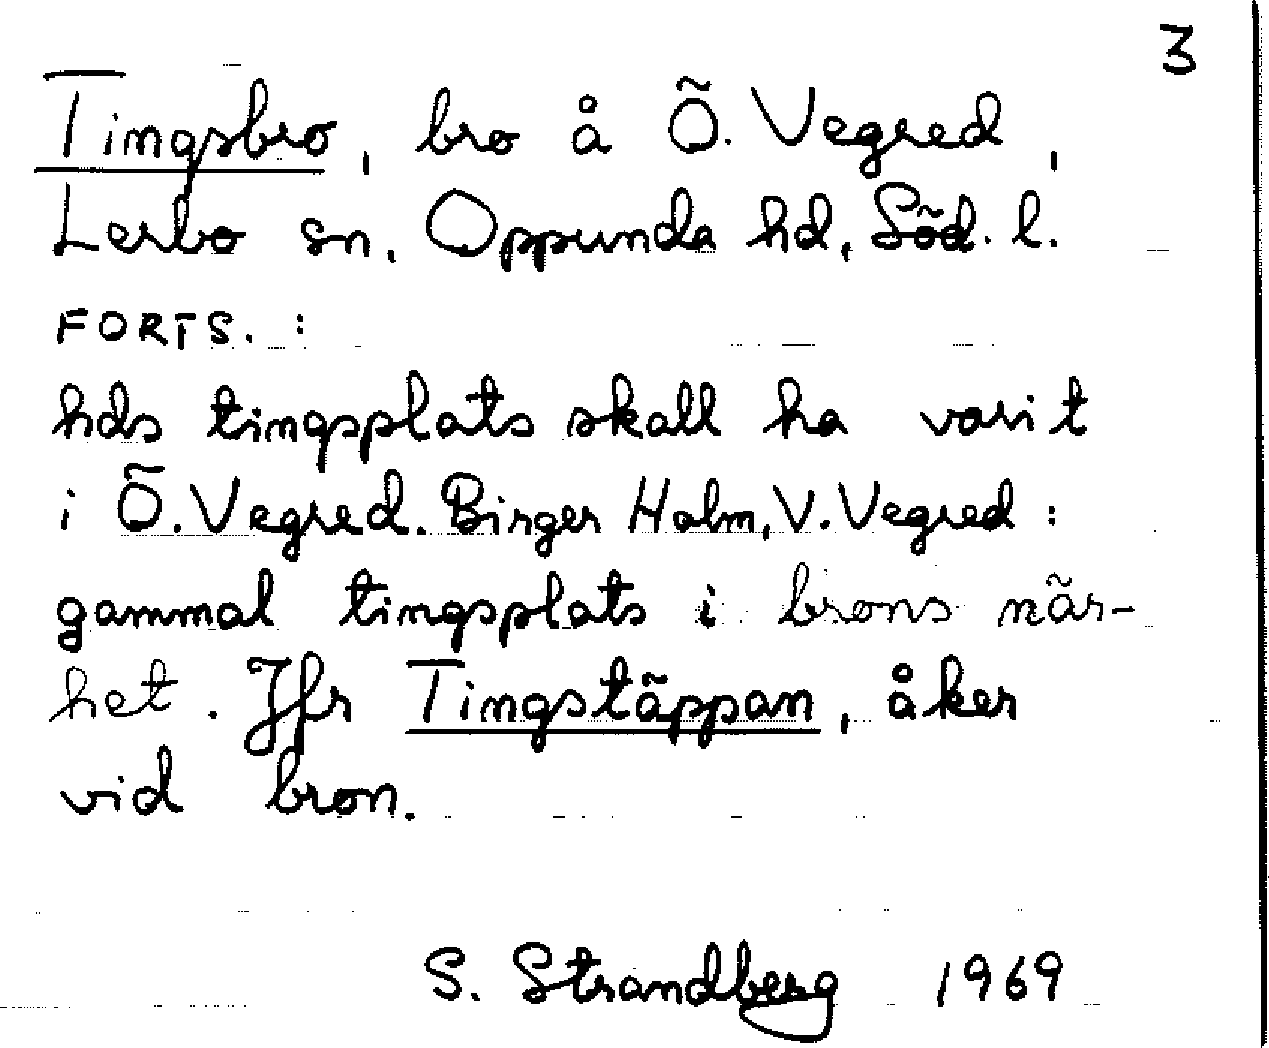 3
Tingsbro, bro å Ö. Vegred,
Lerbo sn, Oppunda hd, Söd. l.
FORTS. :
hds tingsplats skall ha varit
i Ö. Vegred. Birger Holm, V. Vegred :
gammal tingsplats i brons när-
het. Jfr Tingstäppan, åker
vid bron.
S. Strandberg 1969